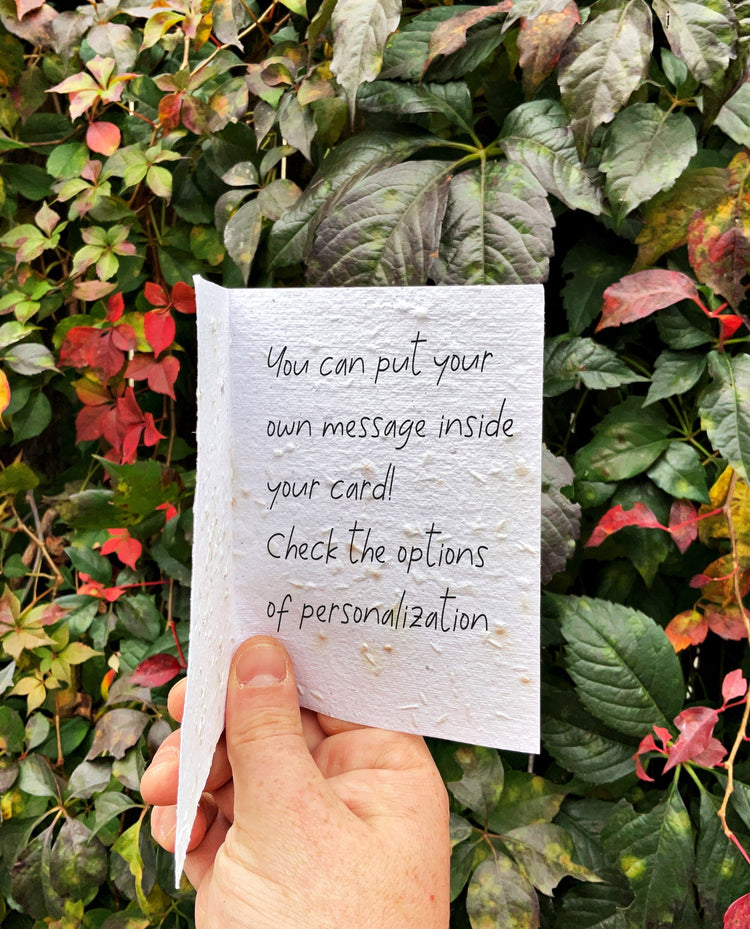 You can put your
own message inside
your card!
Check the options
of personalization